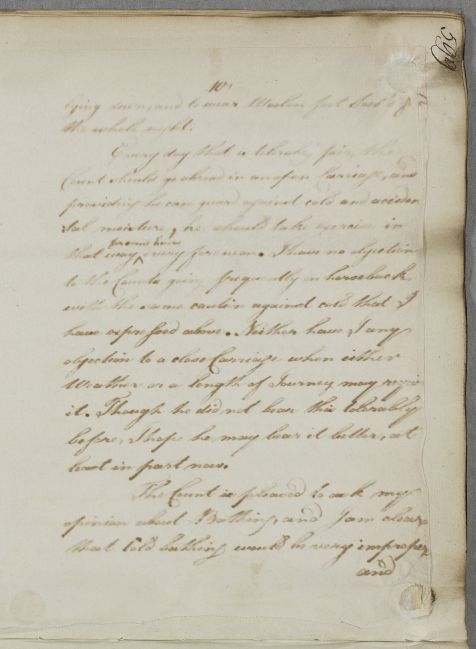 10.
lying down, and to wear Woolen
the whole night.
Every day that is tolerably fair, the
Count should go abroad in an open Carriage, and
providing he can guard against cold and acciden
tal moisture, he should take exercise in
that way every forenoon. I have no objection
to the Counts going frequently on horseback
with the same caution against cold that I
have expressed above. Neither have I any
objection to a close Carriage when either
Weather or a length of Journey may require
it. Though he did not bear this tolerably
before, I hope he may bear it better, at
least in part now.
The Count is pleased to ask my
opinion about Bathing, and I am clear
that Cold bathing would be very improper
and